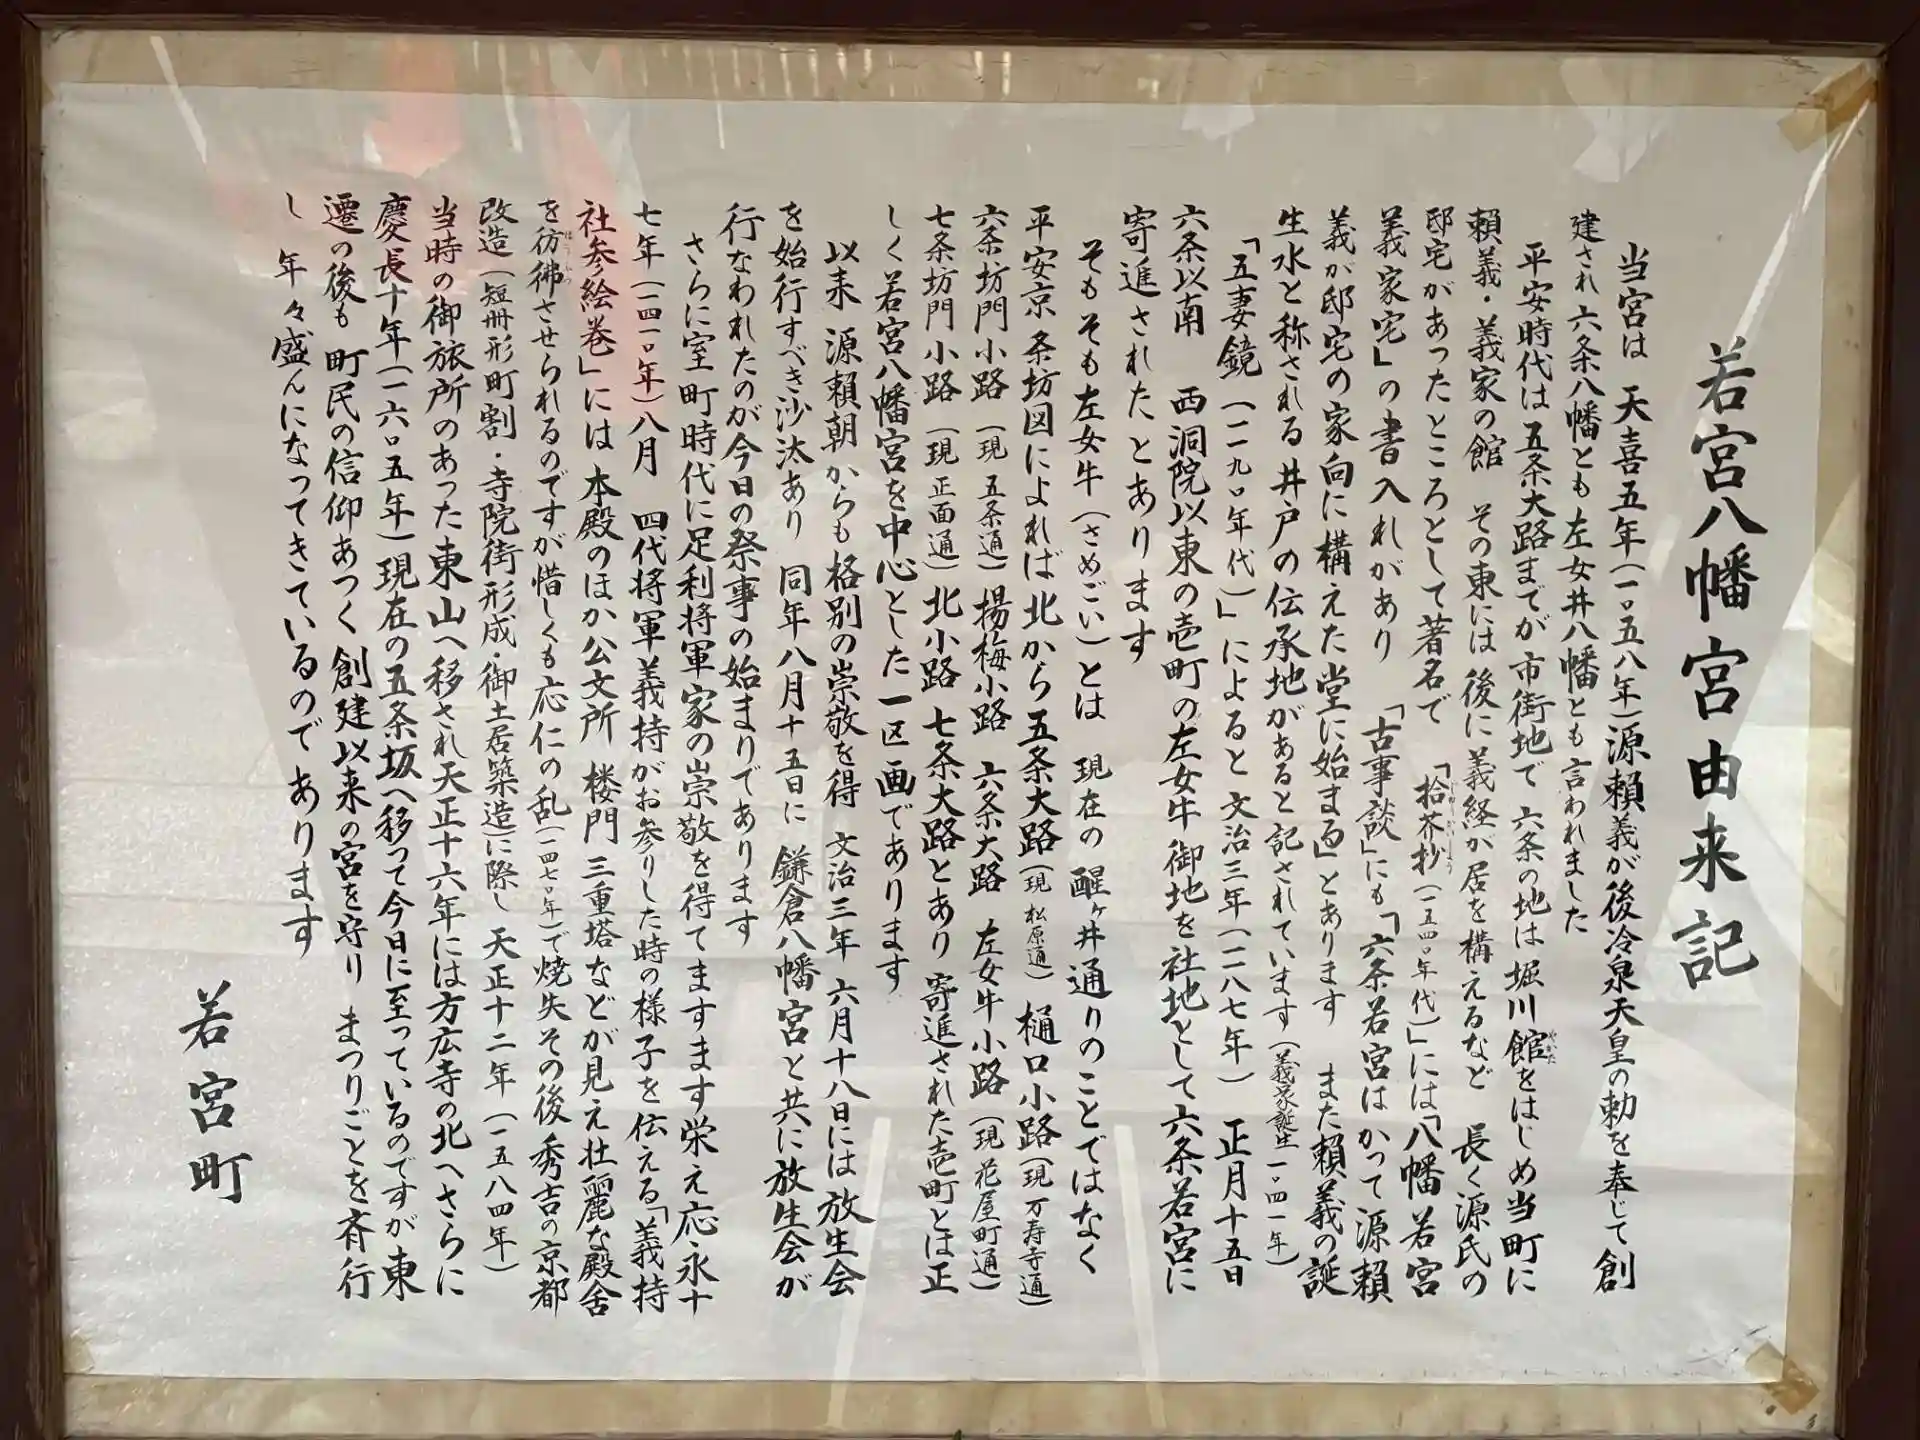 若宮八幡宮由来記
当宮は　天喜五年(一〇五八年)源頼義が後冷泉天皇の勅を奉じて創
建され六条八幡とも左女井八幡とも言われました
平安時代は五条大路までが市街地で　六条の地は堀川館をはじめ当町に
頼義・義家の館　その東には後に義経が居を構えるなど　長く源氏の
邸宅があったところとして著名で　「拾芥抄(一五四〇年代)」には「八幡若宮
義家宅」の書入れがあり　「古事談」にも「六条若宮はかつて源頼
義が邸宅の家向に構えた堂に始まる」とあります　また頼義の誕
生水と称される井戸の伝承地があると記されています(義家誕生一〇四一年)
「五妻鏡(一一九〇年代)」によると文治三年(一一八七年)　正月十五日
六条以南　西洞院以東の壱町の左女牛御地を社地として六条若宮に
寄進されたとあります
そもそも左女牛(さめごい)とは　現在の醒ヶ井通りのことではなく
平安京条坊図によれば北から五条大路(現松原通)樋口小路(現万寿寺通)
六条坊門小路(現五条通)楊梅小路　六条大路　左女牛小路(現花屋町通)
七条坊門小路(現正面通)北小路　七条大路とあり　寄進された壱町とは正
しく若宮八幡宮を中心とした一区画であります
以来　源頼朝からも格別の崇敬を得　文治三年　六月十八日には放生会
を始行すべき沙汰あり　同年八月十五日に　鎌倉八幡宮と共に放生会が
行なわれたのが今日の祭事の始まりであります
さらに室町時代に足利将軍家の崇敬を得てますます栄え応永十
七年(一四一〇年)八月　四代将軍義持がお参りした時の様子を伝える「義持
社参絵巻」には　本殿のほか公文所　楼門　三重塔などが見え壮麗な殿舎
を彷彿させられるのですが惜しくも応仁の乱(一四七〇年)で焼失その後秀吉の京都
改造(短冊形町割・寺院街形成・御土居築造)に際し　天正十二年(一五八四年)
当時の御旅所のあった東山へ移され天正十六年には方広寺の北へさらに
慶長十年(一六〇五年)現在の五条坂へ移って今日に至っているのですが東
遷の後も町民の信仰あつく創建以来の宮を守り　まつりごとを斉行
し　年々盛んになってきているのであります
若宮町